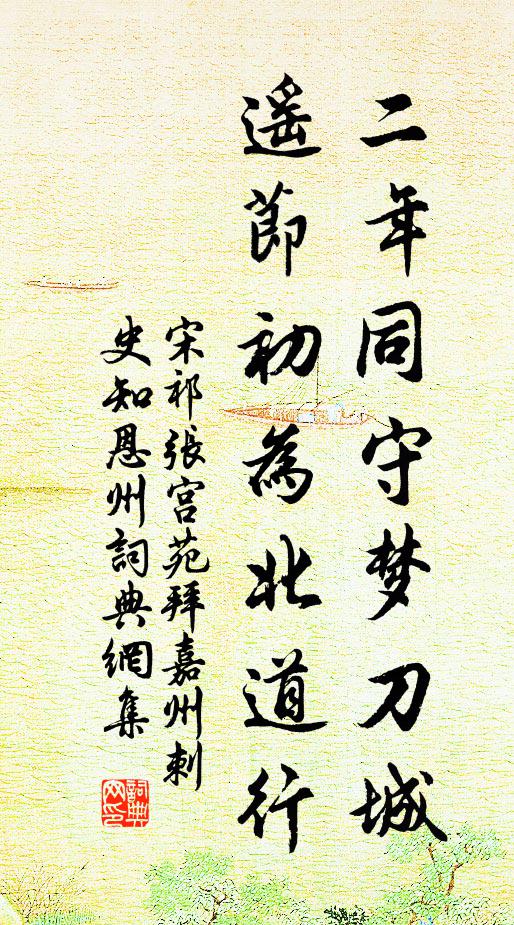 二年同守梦刀城
遥莭初為北道行
宋祁張宫苑拜嘉州刺
史知恩州詞典網集
詞典网印